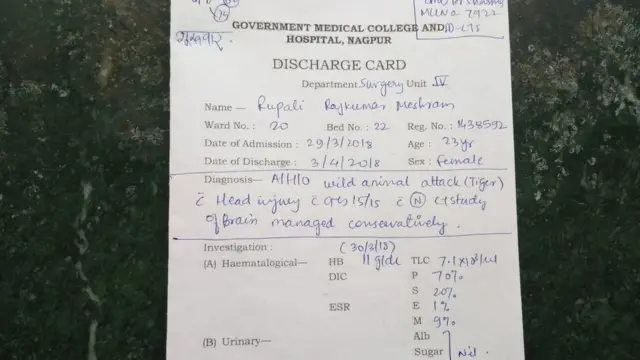 74
GOVERNMENT MEDICAL COLLEGE AND
HOSPITAL, NAGPUR
गुरुवार
DISCHARGE CARD
Department Surgery Unit IV
Name — Rupali Rajkumar Meshram
Ward No. : 20 Bed No. : 22 Reg. No. : 1438592
Date of Admission : 29/3/2018 Age : 23yr
Date of Discharge : 3/4/2018 Sex : female
Diagnosis— A/H/O wild animal attack (Tiger)
c̄ Head injury c̄ GCS 15/15 c̄ (N) CT study
of Brain managed conservatively.
Investigation : (30/3/18)
(A) Haematalogical— HB 11 g/dl TLC 7.1x10³/ul
DIC P 70%
S 20%
ESR E 1%
M 9%
(B) Urinary— Alb
Sugar Nil